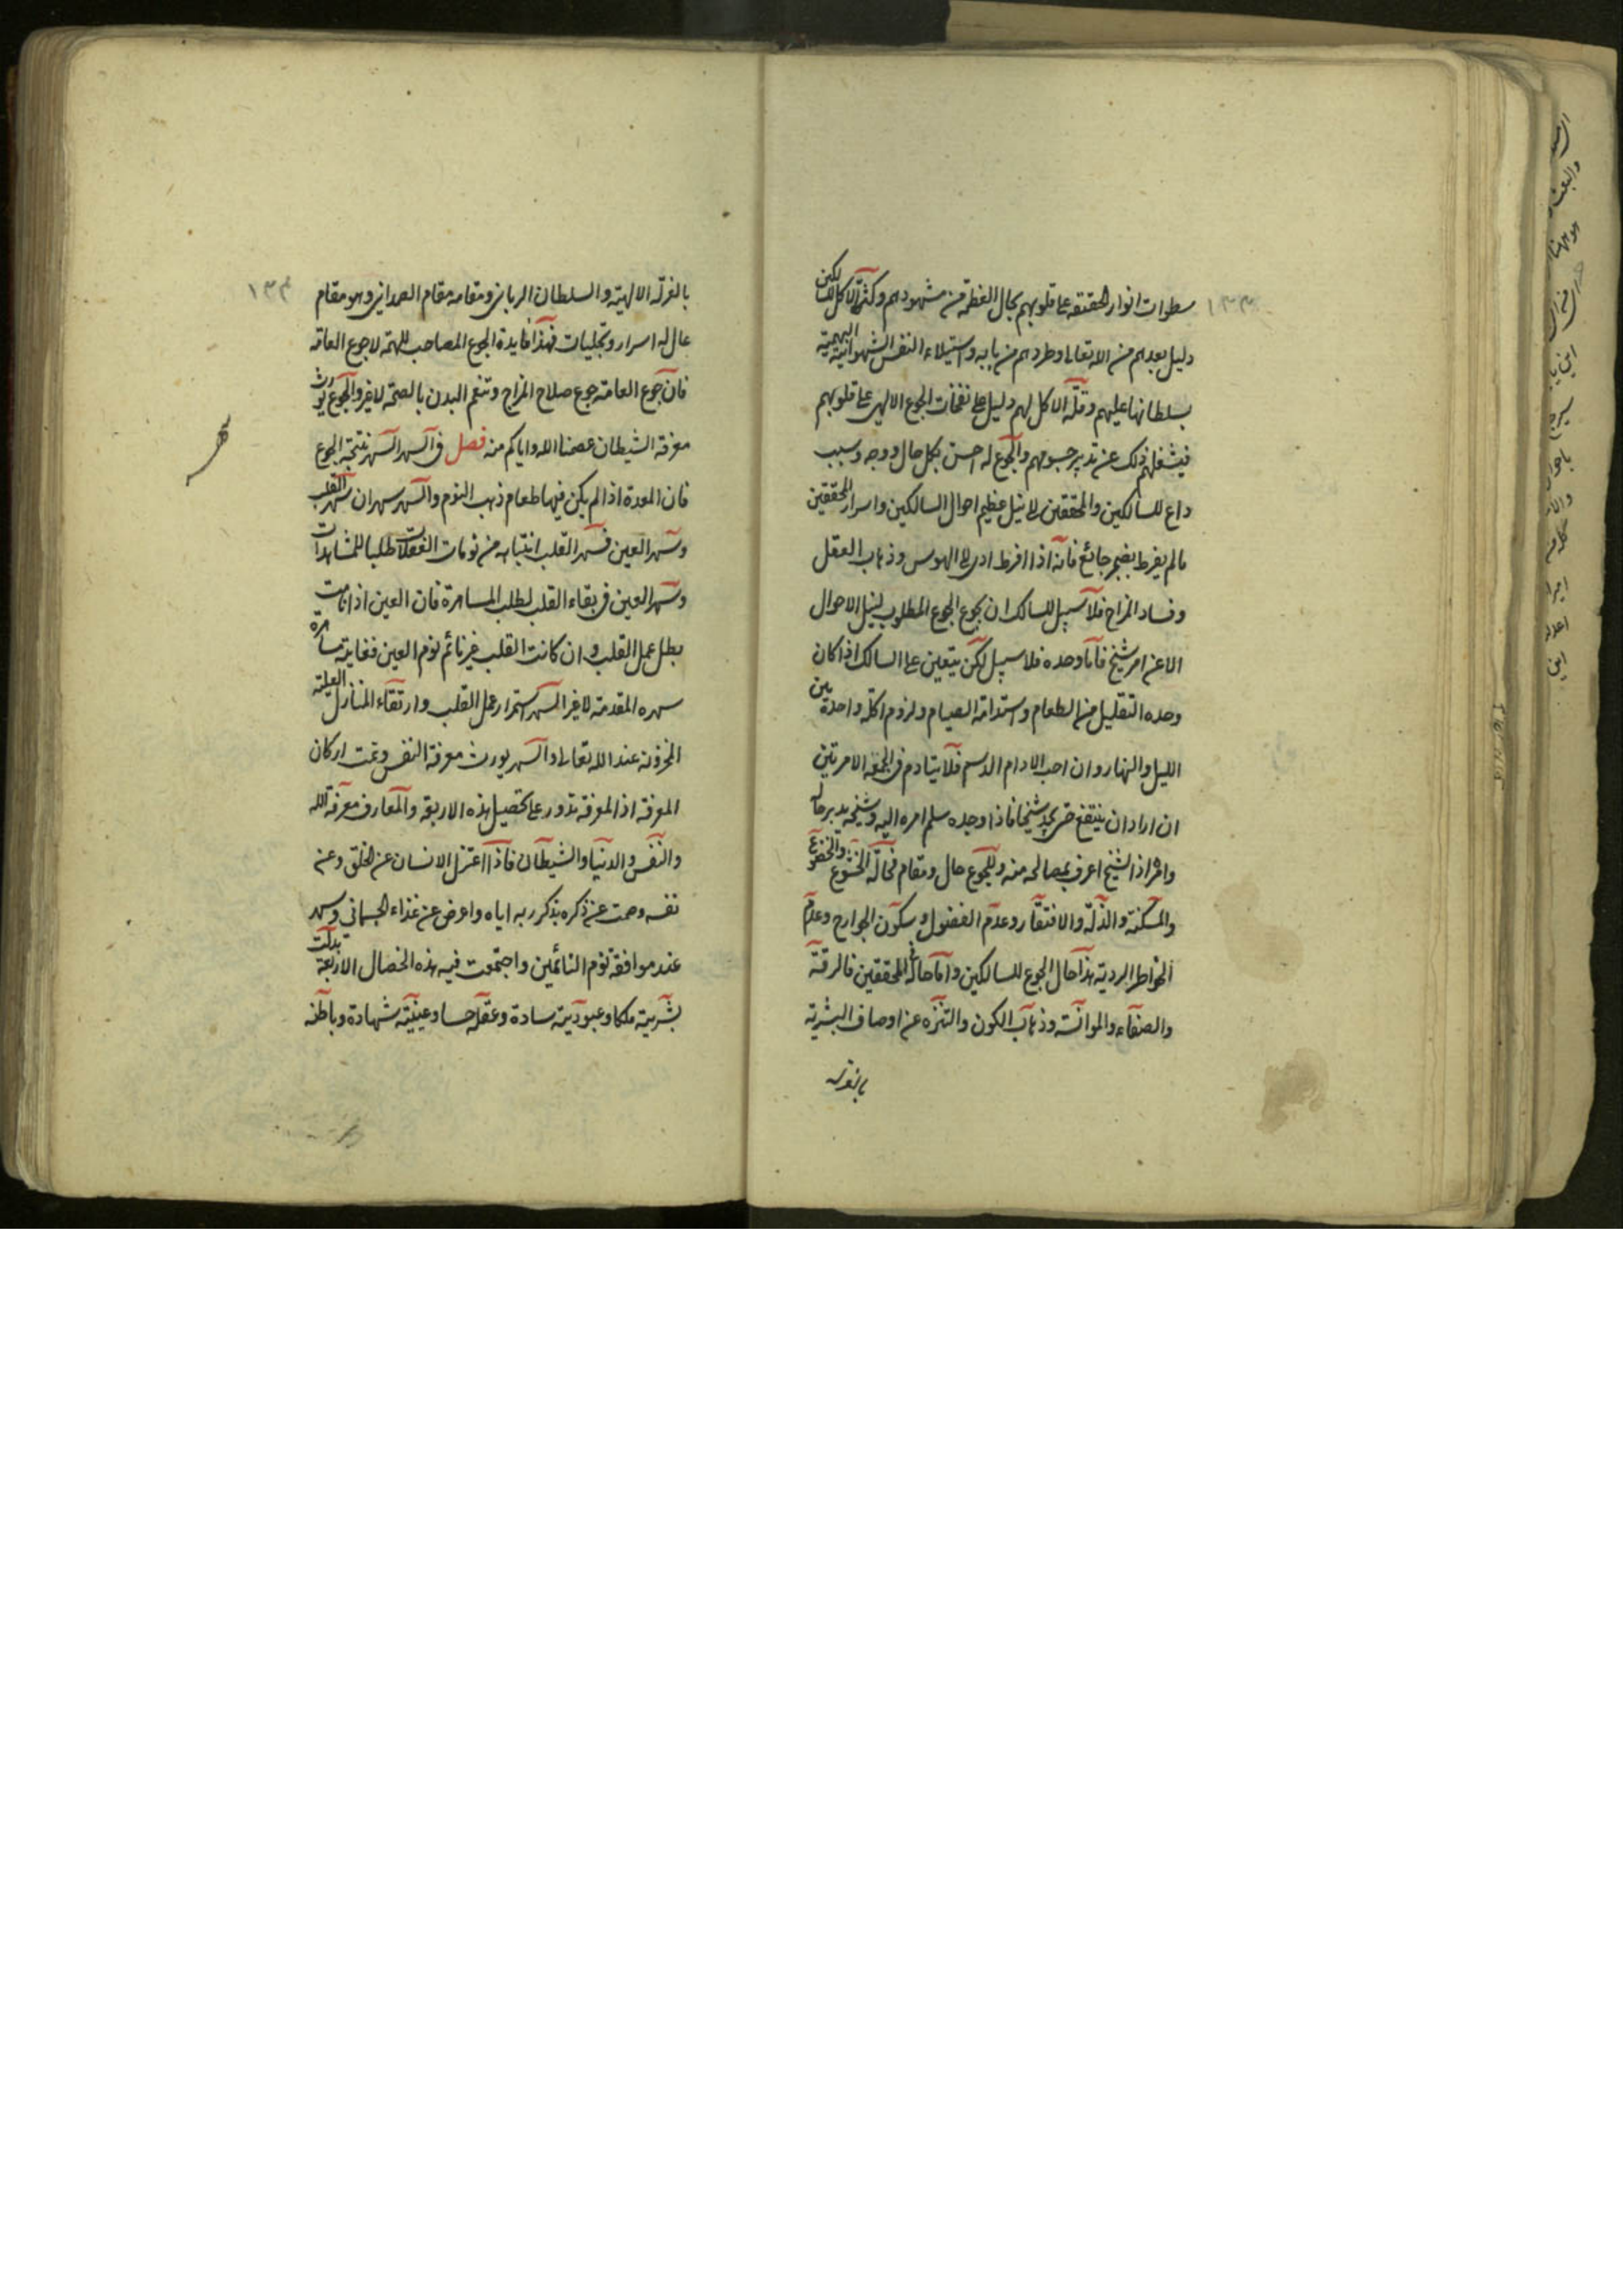 ١٣٣
سطوات انوار الحقيقة على قلوبهم بحال العظمة من مشهودهم وكثرة الاكل للسالكين
دليل بعدهم من الله تعالى وطردهم من بابه واستيلاء النفس الشهوانية البهيمية
بسلطانها عليهم وقلة الاكل لهم دليل على نفحات الجوع الالهى على قلوبهم
فيشغلهم ذلك عن تدبير جسومهم والجوع له احسن بكل حال ووجه وسبب
داع للسالكين والمحققين الى نيل عظيم احوال السالكين واسرار المحققين
مالم يفرط بضجر جائع فانه اذا افرط ادى الى الهوس وذهاب العقل
وفساد المزاج فلا سبيل للسالك ان يجوع الجوع المطلوب لنيل الاحوال
الا عن امر شيخ فاما وحده فلا سبيل لكن يتعين على السالك اذا كان
وحده التقليل من الطعام واستدامة الصيام ولزوم اكلة واحدة بين
الليل والنهار وان احب الادام الدسم فلا يتادم فى الجمعة الا مرتين
ان اراد ان ينتفع حتى يجد شيخا فاذا وجده سلم امره اليه وشيخه يدبر حاله
وامره اذ الشيخ اعرف بمصالحه منه وللجوع حال ومقام فحاله الخشوع والخضوع
والمسكنة والذلة والافتقار وعدم الفضول وسكون الجوارح وعدم
الخواطر الردية هذا حال الجوع للسالكين واما حاله فى المحققين فالرقة
والصفاء والموانسة وذهاب الكون والتنزه عن اوصاف البشرية
بالعزة
١٣٤
بالعزة الالهية والسلطان الربانى ومقامه مقام الصمدانى وهو مقام
عال له اسرار وتجليات فهذا فايدة الجوع المصاحب للهمة لا جوع العامة
فان جوع العامة جوع صلاح المزاج وتنعم البدن بالصحة لا غير والجوع يورث
معرفة الشيطان عصمنا الله واياكم منه فصل فى السهر السهر نتيجة الجوع
فان المعدة اذا لم يكن فيها طعام ذهب النوم والسهر سهران سهر القلب
وسهر العين فسهر القلب انتباهه من نومات الغفلات طلبا للمشاهدات
وسهر العين فى بقاء القلب لطلب المسامرة فان العين اذا نامت
بطل عمل القلب وان كانت القلب غير نائم نوم العين فغايته مسامرة
سهره المقدمة لا غير السهر استمرار عمل القلب وارتقاء المنازل العلية
المخزونة عند الله تعالى والسهر يورث معرفة النفس وتمت اركان
المعرفة اذ المعرفة تدور على تحصيل هذه الاربعة والمعارف معرفة الله
والنفس والدنيا والشيطان فاذا اعتزل الانسان عن الخلق وعن
نفسه وصمت عن ذكره بذكر ربه اياه واعرض عن غذاء الجسمانى وسهر
عند موافقة نوم النائمين واجتمعت فيه هذه الخصال الاربعة بدلت
بشريته ملكا وعبوديته سيادة وعقله حسا وغيبته شهادة وباطنه